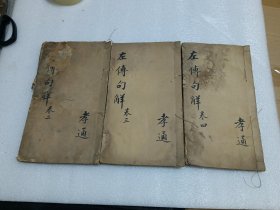 傳句解 卷二
孝通
左傳句解 卷三
孝通
左傳句解 卷四
孝通